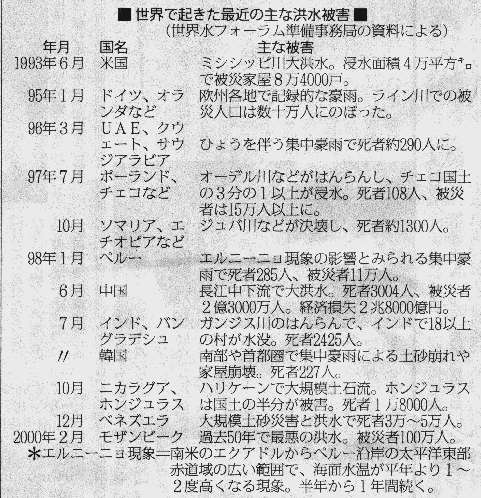 ■世界で起きた最近の主な洪水被害■
(世界水フォーラム準備事務局の資料による)
年月 国名 主な被害
1993年6月 米国 ミシシッピ川大洪水。浸水面積4万平方㌔
で被災家屋8万4000戸。
95年1月 ドイツ、オラ 欧州各地で記録的な豪雨。ライン川での被
ンダなど 災人口は数十万人にのぼった。
96年3月 UAE、クウ
ェート、サウ ひょうを伴う集中豪雨で死者約290人に。
ジアラビア
97年7月 ポーランド、 オーデル川などがはんらんし、チェコ国土
チェコなど の3分の1以上が浸水。死者108人、被災
者は15万人以上に。
10月 ソマリア、エ ジュバ川などが決壊し、死者約1300人。
チオピアなど
98年1月 ペルー エルニーニョ現象の影響とみられる集中豪
雨で死者285人、被災者11万人。
6月 中国 長江中下流で大洪水。死者3004人、被災者
2億3000万人。経済損失2兆8000億円。
7月 インド、バン ガンジス川のはんらんで、インドで18以上
グラデシュ の村が水没。死者2425人。
〃 韓国 南部や首都圏で集中豪雨による土砂崩れや
家屋崩壊。死者227人。
10月 ニカラグア、 ハリケーンで大規模土石流。ホンジュラス
ホンジュラス は国土の半分が被害。死者1万8000人。
12月 ベネズエラ 大規模土砂災害と洪水で死者3万〜5万人。
2000年2月 モザンビーク 過去50年で最悪の洪水。被災者100万人。
＊エルニーニョ現象=南米のエクアドルからペルー沿岸の太平洋東部
赤道域の広い範囲で、海面水温が平年より1〜
2度高くなる現象。半年から1年間続く。